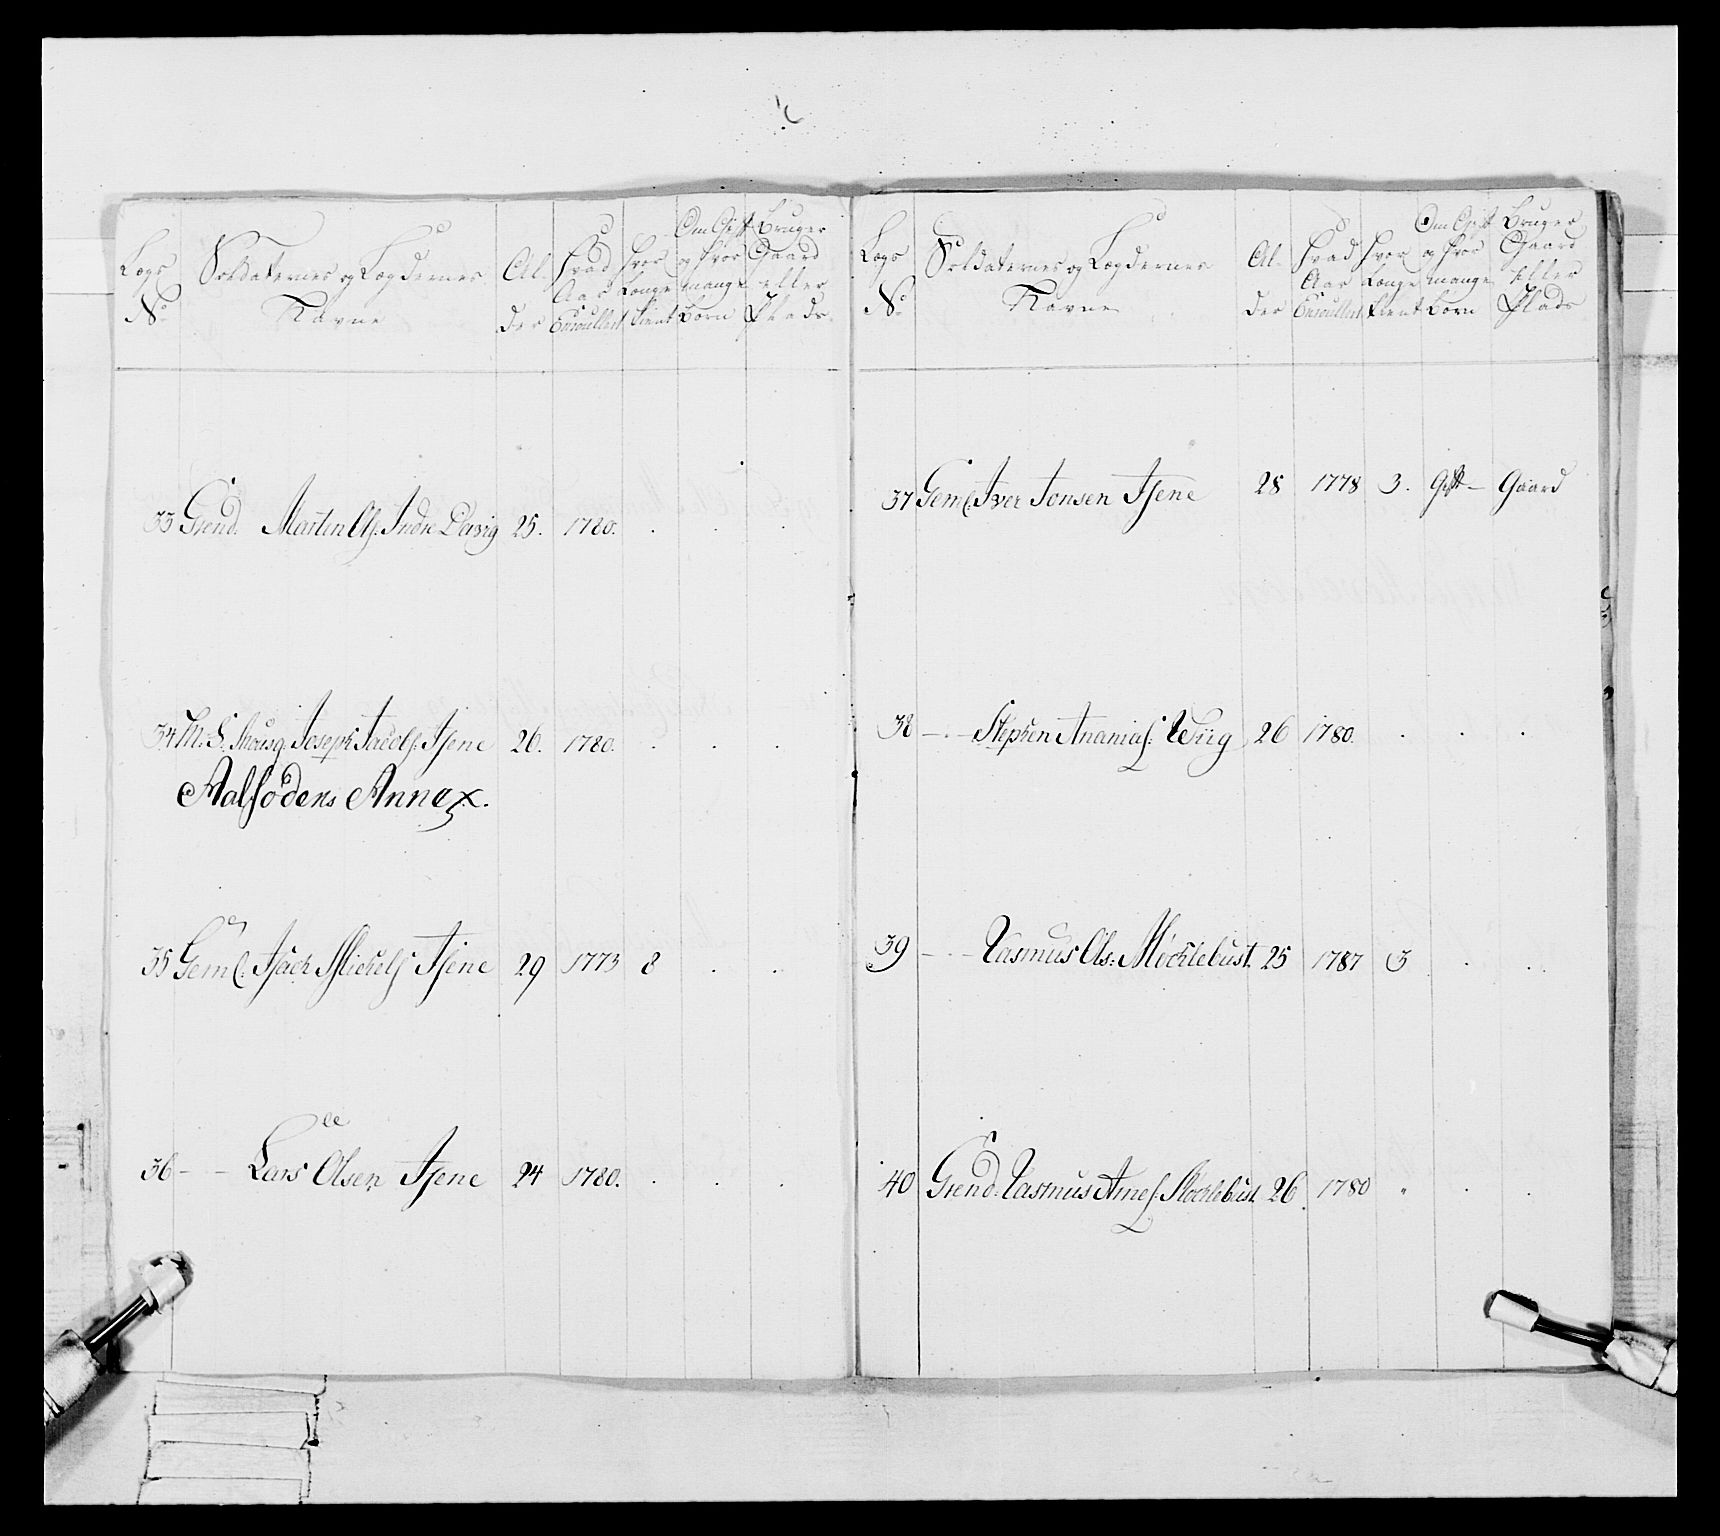 Legs No Soldaternes og Legdernes Navne Alder Hvad Aar Enroullert Hvor Længe tient Om Gift og hvor mange Børn Bruger Gaard eller Plads
33 Grend. Martin Ols: Indre 25. 1780. . . .
34 M: S: Joseph Jacobs: Isene 26. 1780. . . .
Aalfodens Annex.
35 Geml. Isach Mickels Isene 29 1773 8 . .
36 - - Lars Olsen Isene 24 1780. . . .
Legs No Soldaternes og Legdernes Navne Alder Hvad Aar Enroullert Hvor Længe tient Om Gift og hvor mange Børn Bruger Gaard eller Plads
37 Geml. Iver Jonsen Isene 28 1778 3. Gift - Gaard
38 - . - Stephen Ananias: Wiig 26 1780. . . .
39 - . - Rasmus Ols: Møcklebust. 25 1787 3 . .
40 Grend: Rasmus Arnes: Møcklebust. 26. 1780 " . .